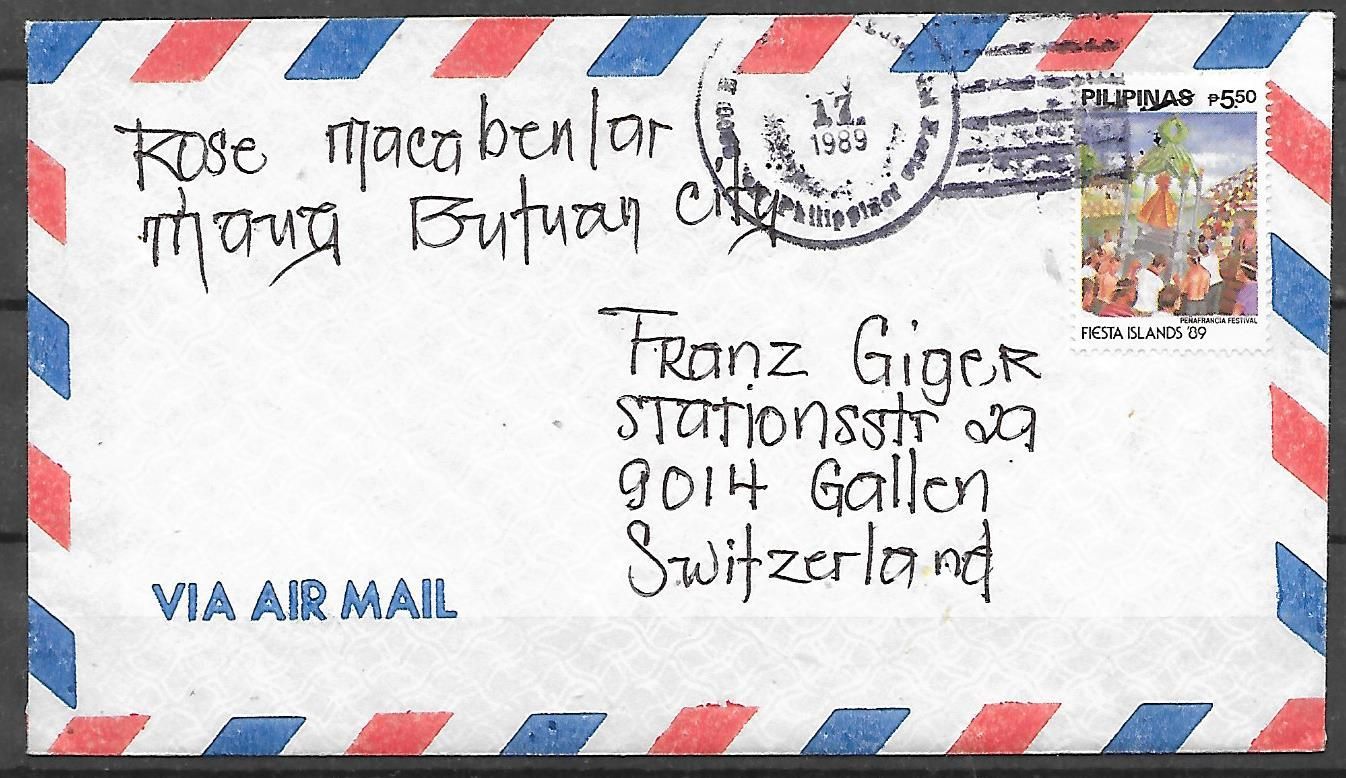 Rose Macabenlar
Maug Butuan City
17.
1989
Philippines
PILIPINAS ₱5.50
PEÑAFRANCIA FESTIVAL
FIESTA ISLANDS '89
Franz Giger
Stationsstr 29
9014 Gallen
Switzerland
VIA AIR MAIL